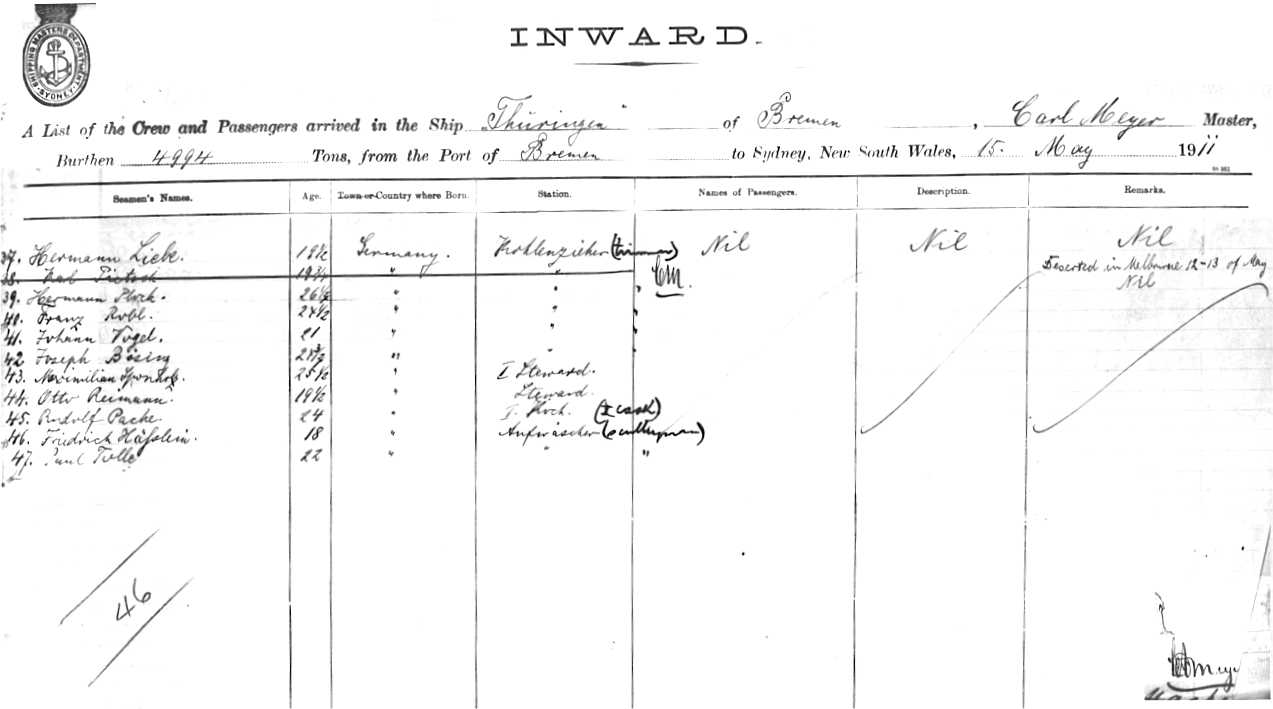 SHIPPING MASTERS DEPARTMENT SYDNEY
INWARD.
A List of the Crew and Passengers arrived in the Ship "Thüringen" of Bremen, Carl Meyer Master,
Burthen 4994 Tons, from the Port of Bremen to Sydney, New South Wales, 15. May 1911
Seamen's Names. Age. Town or Country where Born. Station. Names of Passengers. Description. Remarks.
37. Hermann Liebe. 19½ Germany. Kohlenzieher (trimmer) Nil Nil Nil
38. Karl Pietsch 19¾ " " Deserted in Melbourne 12-13 of May
CM. Nil
39. Hermann 26½ " " "
40. Franz 24½ " " "
41. Johann Vogel. 21 " " "
42 Joseph Bösing " " "
43. Maximilian 25½ " I Steward.
44. Otto Reimann. 19½ " Steward.
45. Rudolf Pache. 24 " I. Koch. (I cook)
46. Friedrich Häfslein. 18 " Aufwäscher (scullyman)
47. Paul Tolle 22 " " "
46
Meyer